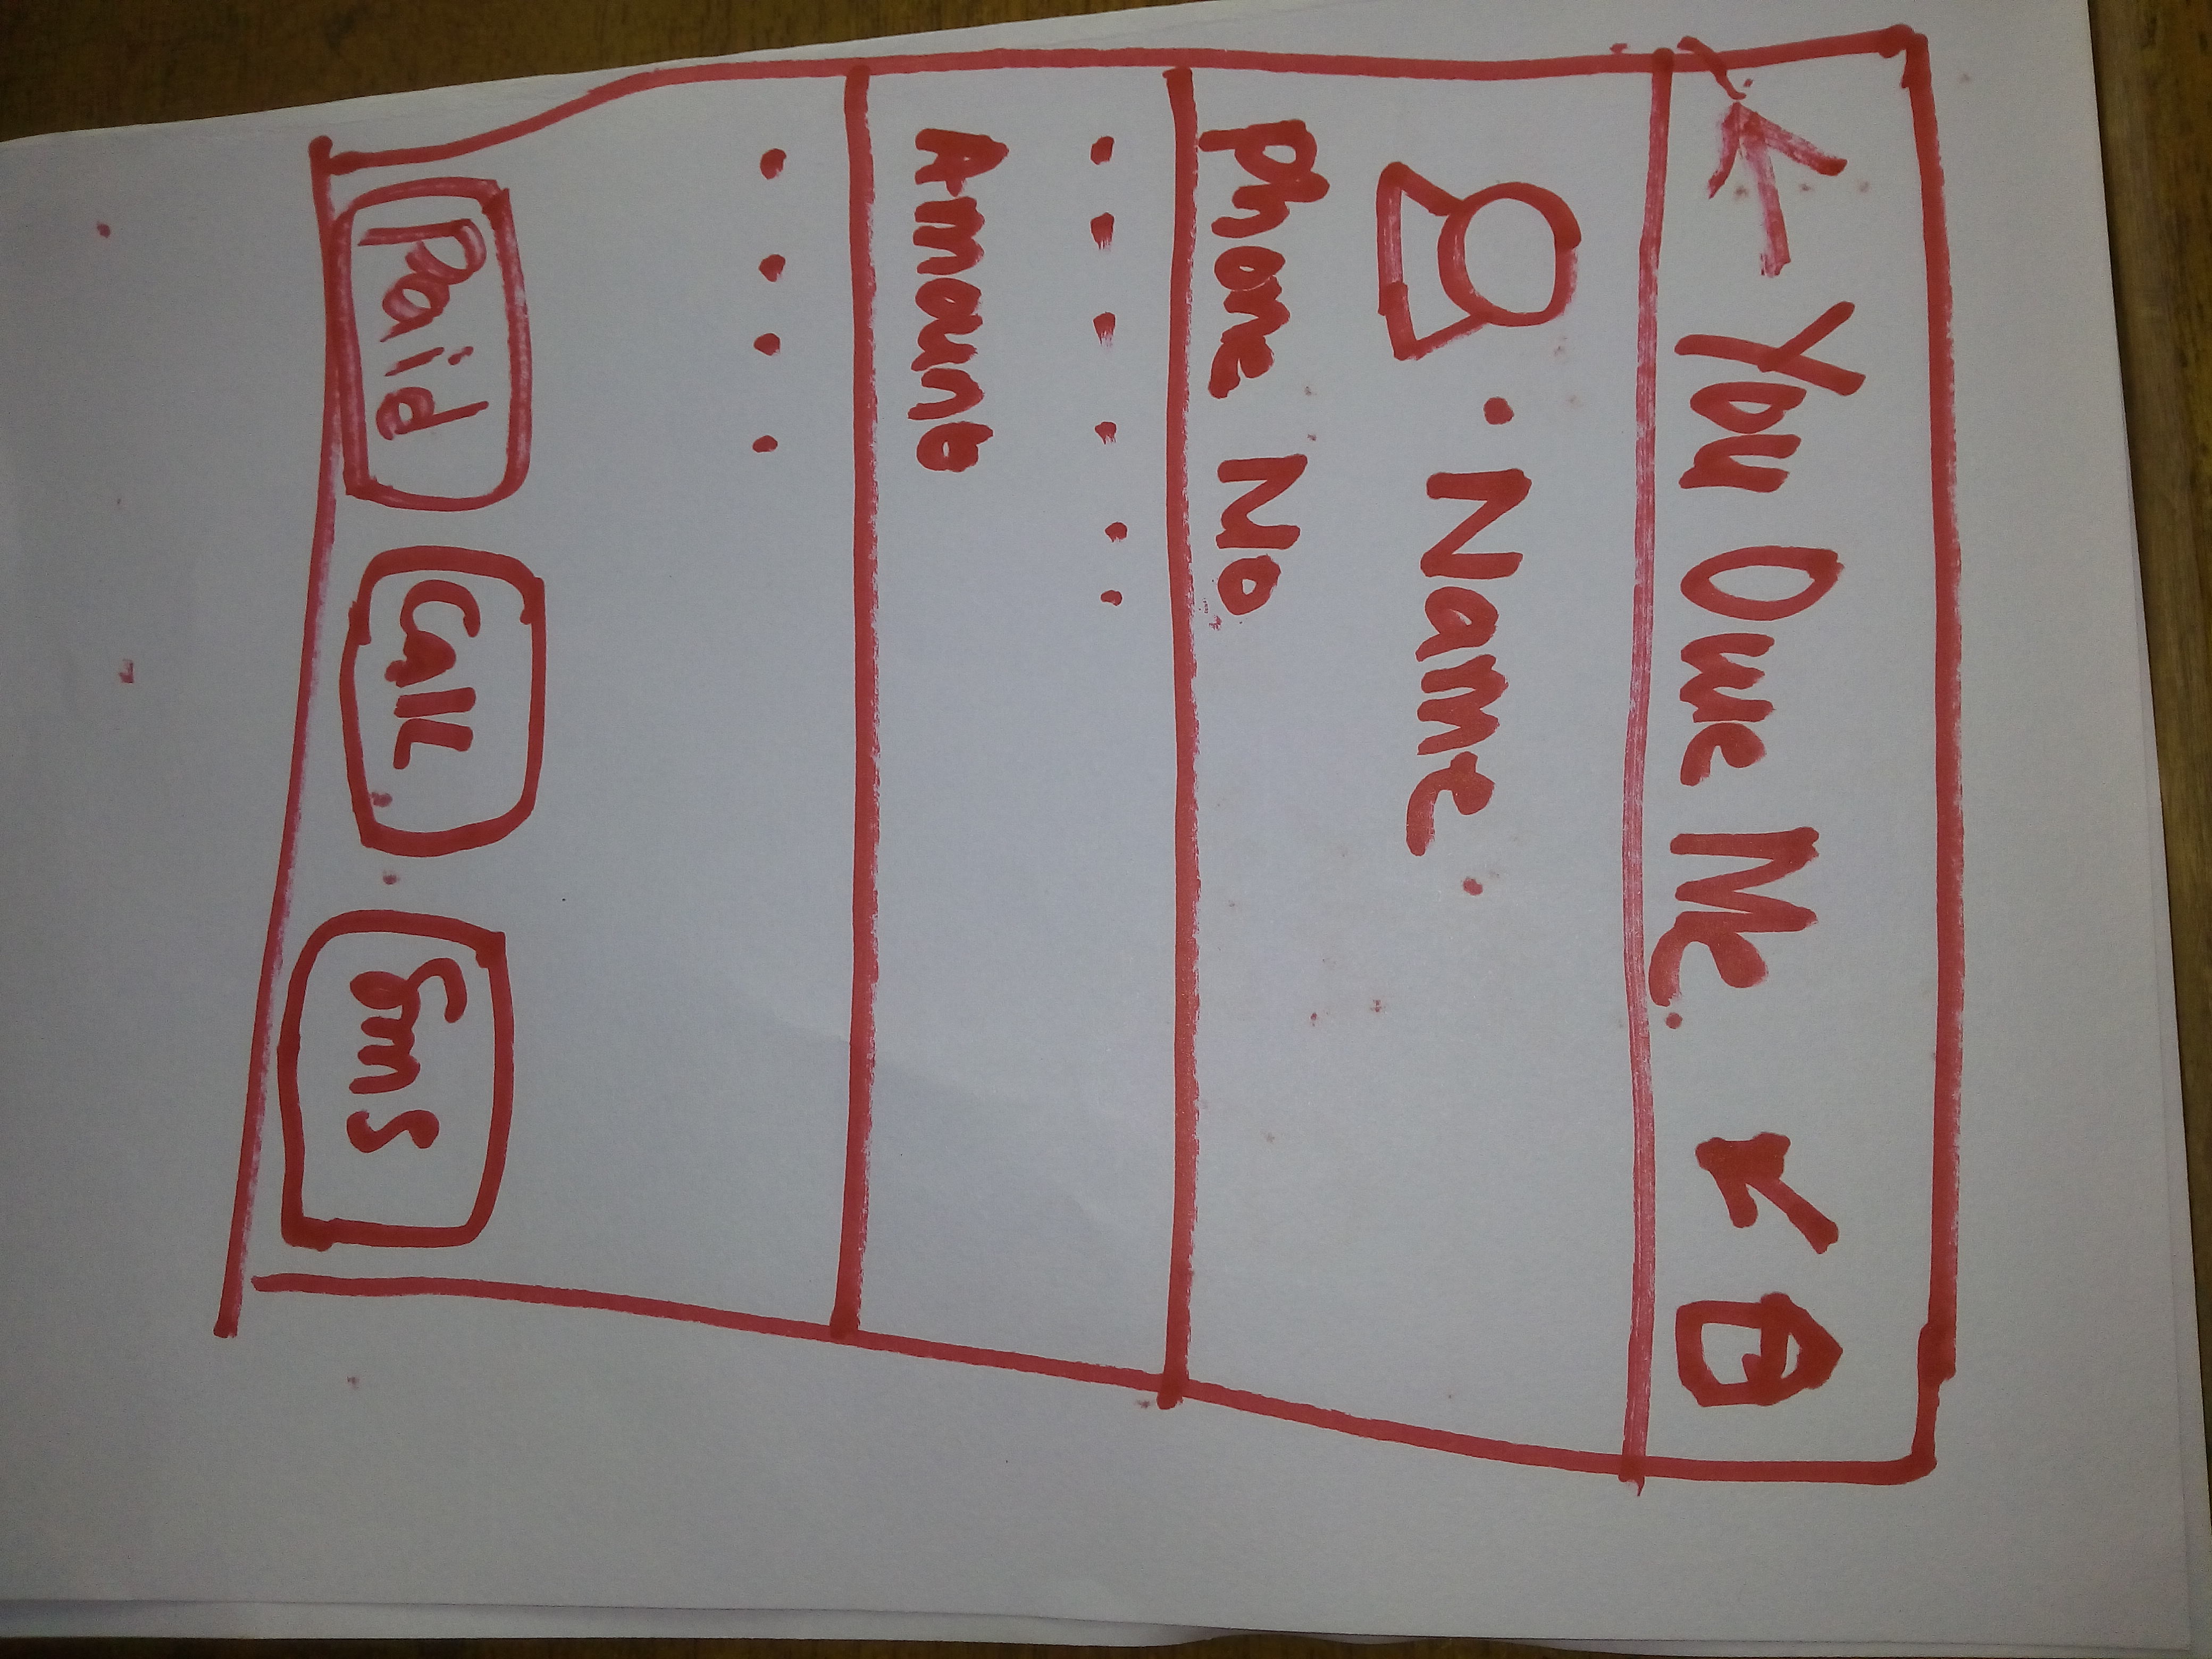 You Owe Me.
Name
Phone No
Amount
Paid Call Sms